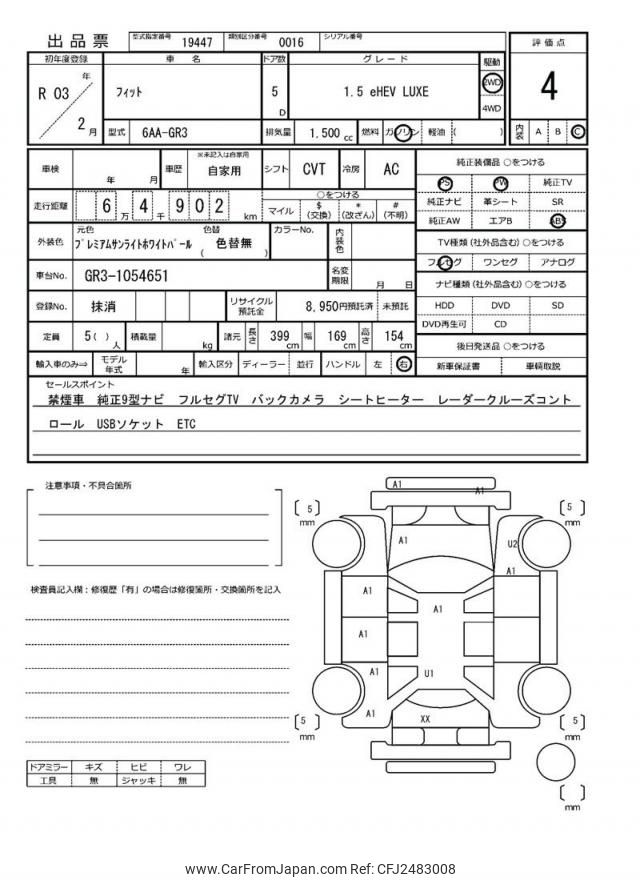 出品票 型式指定番号 19447 類別区分番号 0016 シリアル番号
評価点
4
内装 A B C
初年度登録 車名 ドア数 グレード 駆動
R 03 年 2 月 フィット 5 D 1.5 eHEV LUXE 2WD 4WD
型式 6AA-GR3 排気量 1,500 cc 燃料 ガソリン 軽油 ( )
車検 年 月 車歴 ※未記入は自家用 自家用 シフト CVT 冷房 AC
走行距離 6 万 4 千 9 0 2 km
○をつける
マイル $ (交換) * (改ざん) # (不明)
外装色 元色 プレミアムサンライトホワイトパール 色替 ( 色替無 ) カラーNo. 内装色
車台No. GR3-1054651 名変期限 月 日
登録No. 抹消 リサイクル預託金 8,950円預託済 未預託
定員 5( ) 人 積載量 kg 諸元 長さ 399 cm 幅 169 cm 高さ 154 cm
輸入車のみ⇒ モデル年式 年 輸入区分 ディーラー 並行 ハンドル 左 右
純正装備品 ○をつける
PS PW 純正TV
純正ナビ 革シート SR
純正AW エアB ABS
TV種類 (社外品含む) ○をつける
フルセグ ワンセグ アナログ
ナビ種類 (社外品含む) ○をつける
HDD DVD SD
DVD再生可 CD
後日発送品 ○をつける
新車保証書 車輌取説
セールスポイント
禁煙車 純正9型ナビ フルセグTV バックカメラ シートヒーター レーダークルーズコント
ロール USBソケット ETC
注意事項・不具合箇所
検査員記入欄：修復歴「有」の場合は修復箇所・交換箇所を記入
A1
A1
5 mm
5 mm
A1
U2
A1
A1
A1
A1
A1
U1
A1
XX
5 mm
5 mm
mm
ドアミラー キズ ヒビ ワレ
工具 無 ジャッキ 無
www.CarFromJapan.com Ref: CFJ2483008